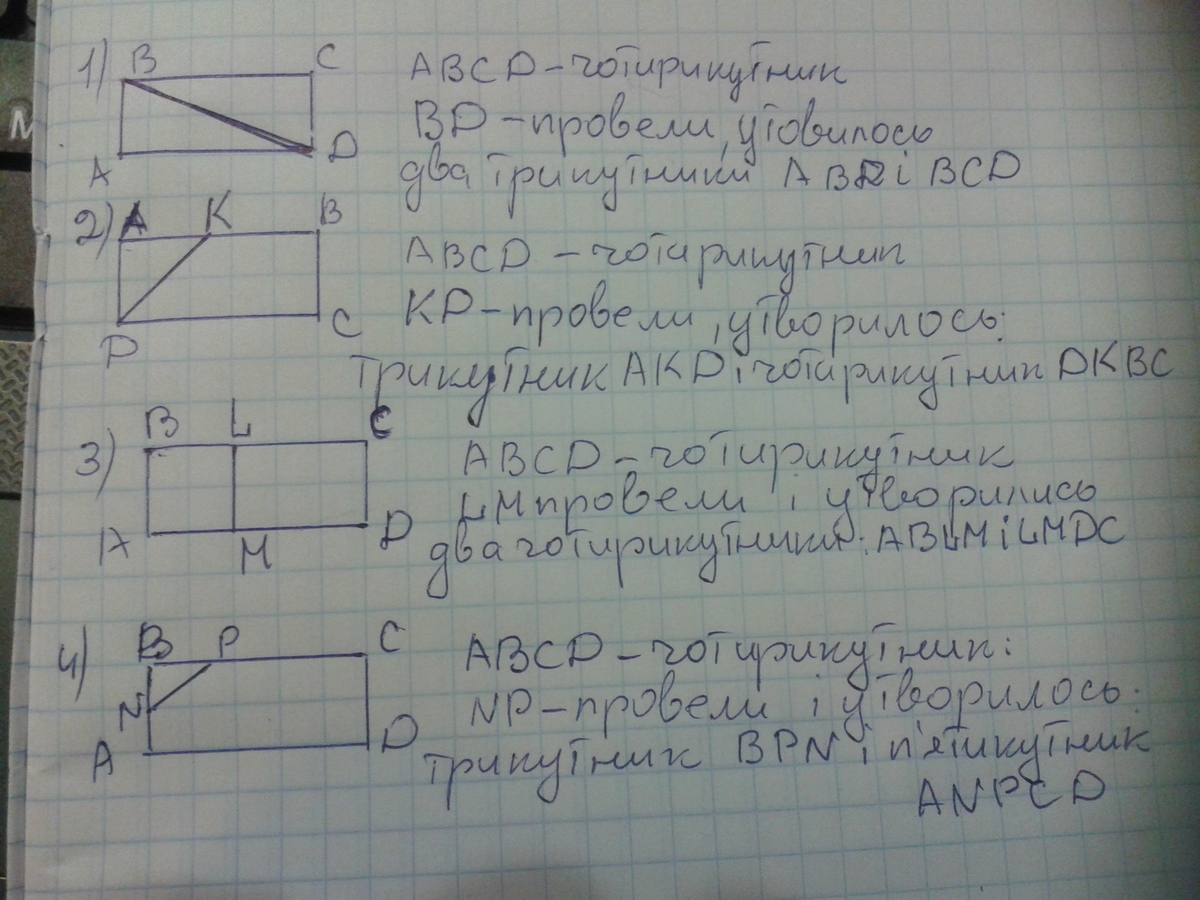 1) B C
A D
ABCD – чотирикутник
BD – провели, утовилось
два трикутники ABD і BCD
2) A K B
D C
ABCD – чотирикутник
KD – провели, утворилось:
трикутник AKD і чотирикутник DKBC
3) B L C
A M D
ABCD – чотирикутник
LM провели і утворились
два чотирикутники: ABLM і LMDC
4) B P C
N
A D
ABCD – чотирикутник:
NP – провели і утворилось:
трикутник BPN і п'ятикутник
ANPCD